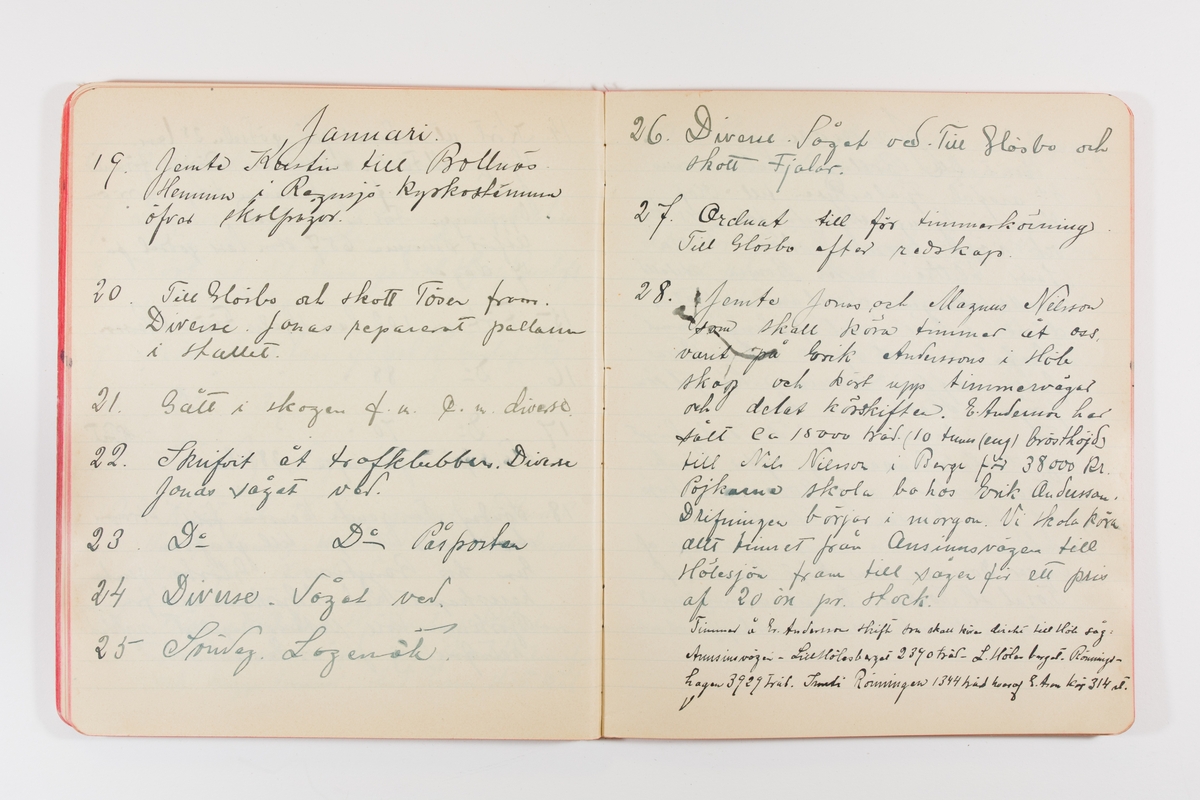 Januari.
19. Jemte Kerstin till Bollnäs.
Hemma i Rengsjö kyrkostämma
öfvat skolfrågor.
20. Till Glösbo och skott Tösen fram.
Diverse. Jonas reparerat pallarna
i stallet.
21. Gått i skogen f. m. E. m. diverse.
22. Skrifvit åt trafklubben. Diverse
Jonas såget ved.
23. Do Do Påsposten
24 Diverse. Såget ved.
25 Söndag.
26. Diverse. Såget ved. Till Glösbo och
skott Fjalar.
27. Ordnat till för timmerkörning.
Till Glösbo efter redskap.
28. Jemte Jonas och Magnus Nelsson
som skall köra timmer åt oss.
varit på Erik Anderssons i Höle
skog och kört upp timmervägar
och delat körskiften. E. Anderson har
sålt ca 18000 träd (10 tums (eng) brösthöjd)
till Nils Nilsson i Berge för 38000 kr.
Pojkarne skola bo hos Erik Andersson.
Drifningen börjar i morgon. Vi skola köra
allt timret från Ansinnsvägen till
Hölesjön fram till sågen för ett pris
af 20 öre pr. stock.
Timmer å Er. Andersson skifte som skall köra direkt till Höle såg:
Annsinsvägen - Lill Hölesberget 2370 träd - L. Hölesberget. Rönnings-
hagen 3929 träd. Rönningen 1344 träd hvaraf E. A:son kör 314 st.